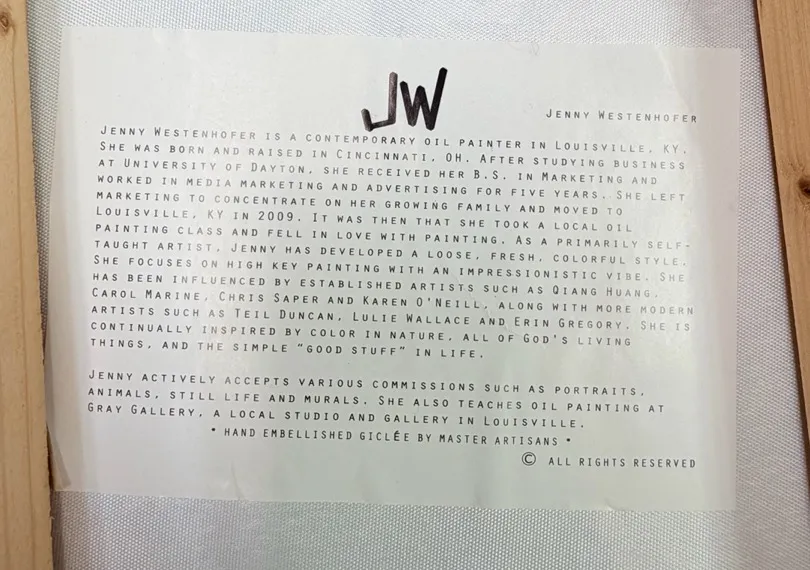 JW
JENNY WESTENHOFER
JENNY WESTENHOFER IS A CONTEMPORARY OIL PAINTER IN LOUISVILLE, KY.
SHE WAS BORN AND RAISED IN CINCINNATI, OH. AFTER STUDYING BUSINESS
AT UNIVERSITY OF DAYTON, SHE RECEIVED HER B.S. IN MARKETING AND
WORKED IN MEDIA MARKETING AND ADVERTISING FOR FIVE YEARS. SHE LEFT
MARKETING TO CONCENTRATE ON HER GROWING FAMILY AND MOVED TO
LOUISVILLE, KY IN 2009. IT WAS THEN THAT SHE TOOK A LOCAL OIL
PAINTING CLASS AND FELL IN LOVE WITH PAINTING. AS A PRIMARILY SELF-
TAUGHT ARTIST, JENNY HAS DEVELOPED A LOOSE, FRESH, COLORFUL STYLE.
SHE FOCUSES ON HIGH KEY PAINTING WITH AN IMPRESSIONISTIC VIBE. SHE
HAS BEEN INFLUENCED BY ESTABLISHED ARTISTS SUCH AS QIANG HUANG,
CAROL MARINE, CHRIS SAPER AND KAREN O'NEILL, ALONG WITH MORE MODERN
ARTISTS SUCH AS TEIL DUNCAN, LULIE WALLACE AND ERIN GREGORY. SHE IS
CONTINUALLY INSPIRED BY COLOR IN NATURE, ALL OF GOD'S LIVING
THINGS, AND THE SIMPLE "GOOD STUFF" IN LIFE.
JENNY ACTIVELY ACCEPTS VARIOUS COMMISSIONS SUCH AS PORTRAITS,
ANIMALS, STILL LIFE AND MURALS. SHE ALSO TEACHES OIL PAINTING AT
GRAY GALLERY, A LOCAL STUDIO AND GALLERY IN LOUISVILLE.
* HAND EMBELLISHED GICLÉE BY MASTER ARTISANS *
© ALL RIGHTS RESERVED